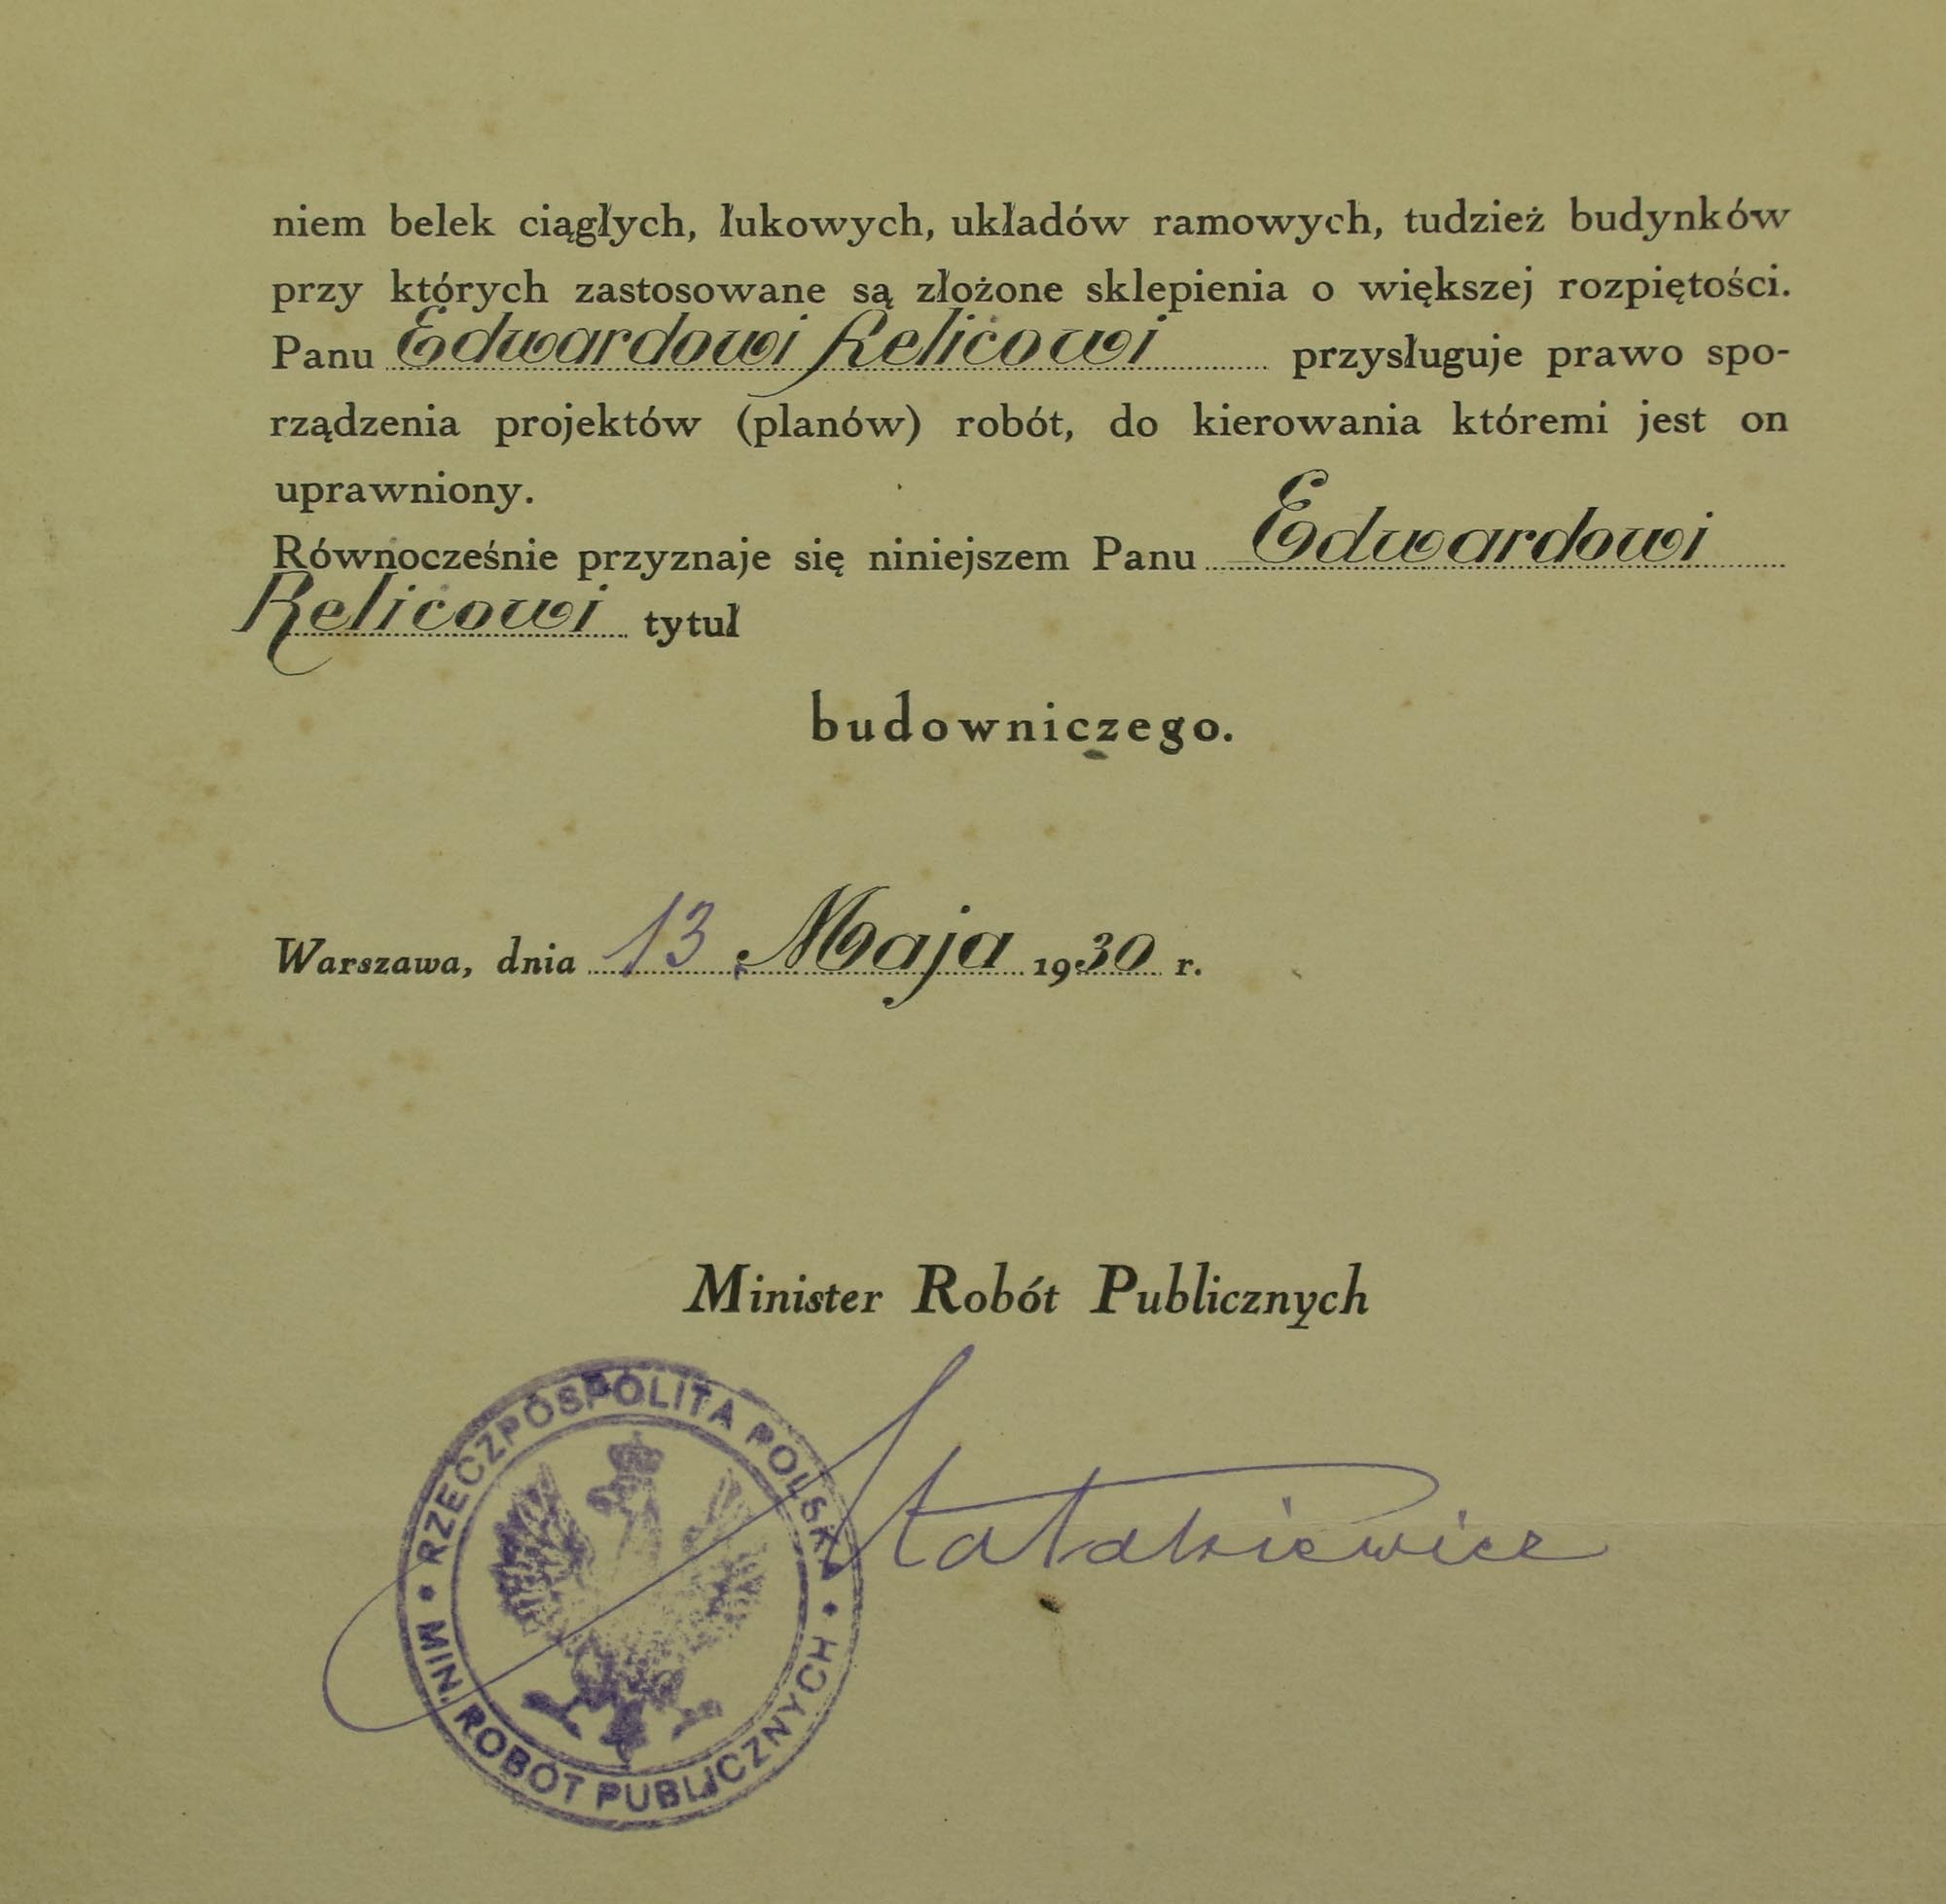 niem belek ciągłych, łukowych, układów ramowych, tudzież budynków
przy których zastosowane są złożone sklepienia o większej rozpiętości.
Panu Edwardowi Relicowi przysługuje prawo spo-
rządzenia projektów (planów) robót, do kierowania któremi jest on
uprawniony.
Równocześnie przyznaje się niniejszem Panu Edwardowi
Relicowi tytuł
budowniczego.
Warszawa, dnia 13. Maja 1930 r.
Minister Robót Publicznych
RZECZPOSPOLITA POLSKA
MIN. ROBÓT PUBLICZNYCH